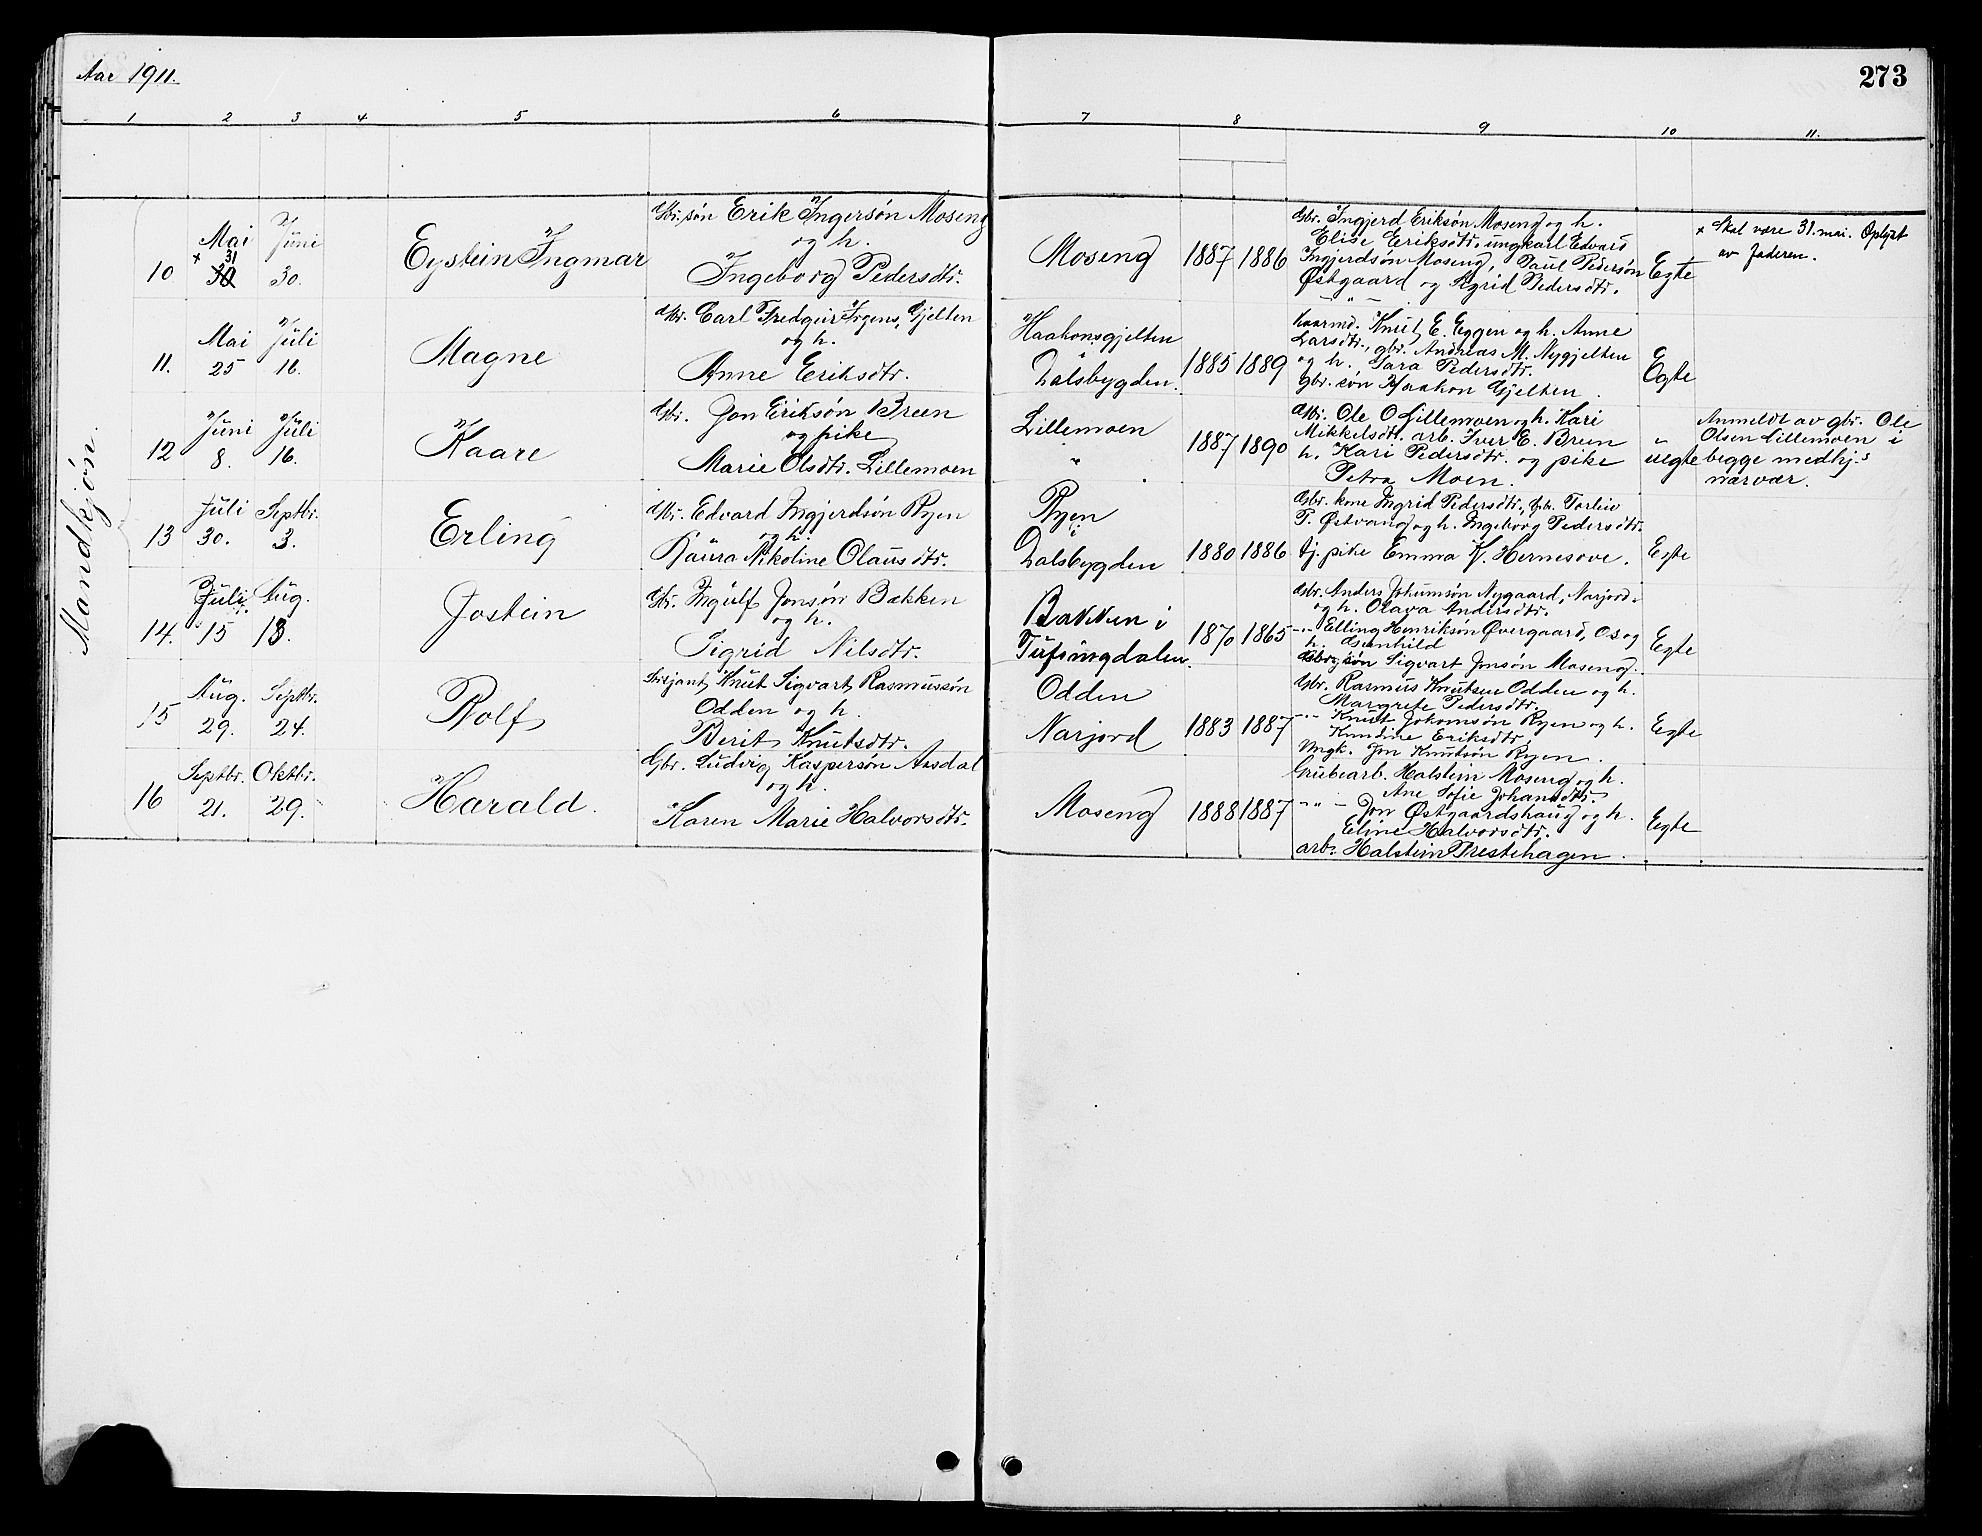 Aar 1911.
273
1 2 3 4 5 6 7 8 9 10 11.
Mandkjøn.
10
Mai
+ 31
30
Juni
30.
Eystein Ingmar
Gbr. søn Erik Ingersøn Moseng
og h.
Ingeborg Pedersdtr.
Moseng
1887 1886
Gbr. Ingjerd Eriksøn Moseng og h.
Elise Eriksdtr. ungkarl Edvard
Ingjerdsøn Moseng, Paul Pedersøn
Østgaard og Sigrid Pedersdtr.
Egte
+ Skal være 31. mai. Oplyst
av faderen.
11.
Mai
25
Juli
16.
Magne
Gbr. Carl Fredgeir Irgens, Gjelten
og h.
Anne Eriksdtr.
Haakonsgjelten
i
Dalsbygden.
1885 1889
Kaarmd. Knut E. Eggen og h. Anne
Larsdtr., gbr. Andreas M. Nygjelten
og h. Sara Pedersdtr.
gbr. søn Haakon Gjelten.
Egte
12
Juni
8.
Juli
16.
Kaare
Gbr. Jon Eriksøn Breen
og pike
Marie Olsdtr. Lillemoen
Lillemoen
"
1887 1890
Gbr. Ole O Lillemoen og h. Kari
Mikkelsdtr. arb. Iver E. Breen
h. Kari Pedersdtr. og pike
Petra Moen.
"
uegte
Anmeldt av gbr. Ole
Olsen Lillemoen i
begge medhj.s
nærvær.
13
Juli
30.
Septbr.
3.
Erling
Gbr. Edvard Ingjerdsøn Ryen
og h.
Laura Nikoline Olausdtr.
Ryen
i
Dalsbygden
1880 1886
Gbr. kone Ingrid Pedersdtr., Gbr. Torleiv
P. Østvang og h. Ingeborg Pedersdtr.
tj. pike Emma K. Hernesove.
Egte
14.
Juli
15
Aug.
13.
Jostein
Gbr. Ingulf Jonsøn Bakken
og h.
Sigrid Nilsdtr.
Bakken i
Tufsingdalen.
1870 1865
Gbr. Anders Johannsøn Nygaard, Narjord.
og h. Olava Andersdtr.
-"- Elling Henriksøn Øvergaard, Os og
h. Gunhild
Gbr. søn Sigvart Jonsøn Moseng.
Egte
15
Aug.
29.
Septbr.
24.
Rolf
Sersjant Knut Sigvart Rasmussøn
Odden og h.
Berit Knutsdtr.
Odden
Narjord
1883 1887
Gbr. Rasmus Knutsen Odden og h.
Margrete Pedersdtr.
-"- Knut Johannsøn Ryen og h.
Kundine Eriksdtr.
Ungk. Jon Knutsøn Ryen.
Egte
16
Septbr.
21.
Oktbr.
29.
Harald.
Gbr. Ludvig Kaspersøn Aasdal
og h.
Karen Marie Halvorsdtr.
Moseng
1888 1887
Grubearb. Halstein Moseng og h.
Ane Sofie Johansdtr.
-"- Jon Østgaardshaug og h.
Eline Halvorsdtr.
arb. Halstein Prestehagen.
Egte